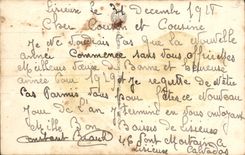 Lisieux le 31 Decembre 1918
Cher Cousin et Cousine
Je Ne Voudrais pas que la Nouvelle
année Commence sans vous offrir mes
Meilleurs Vœux de Bonne et Heureuse
année pour 1919 et Je regrette de N'être
Pas Parmis vous pour fêter ce Nouveau
Jour de l'an Je termine en vous
Bon Baiser de Lisieux
Constant
46
Lisieux Calvados